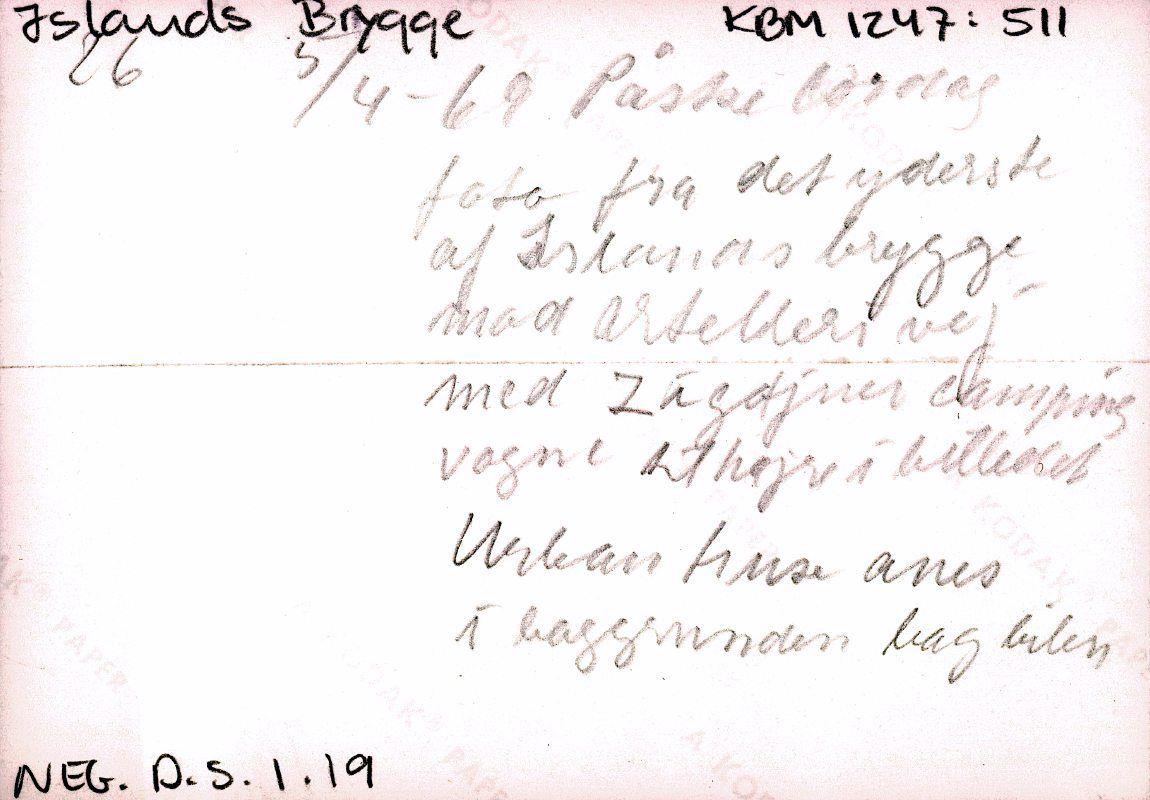 Islands Brygge KBM 1247: 511
26 5/4-69 Påske lördag
foto fra det yderste
af Islands brygge
mod Artelleri vej
med Zigöjner camping
vogne til højre i billedet
Urban huse anes
i baggrunden bag bilen
NEG. D.S. 1.19